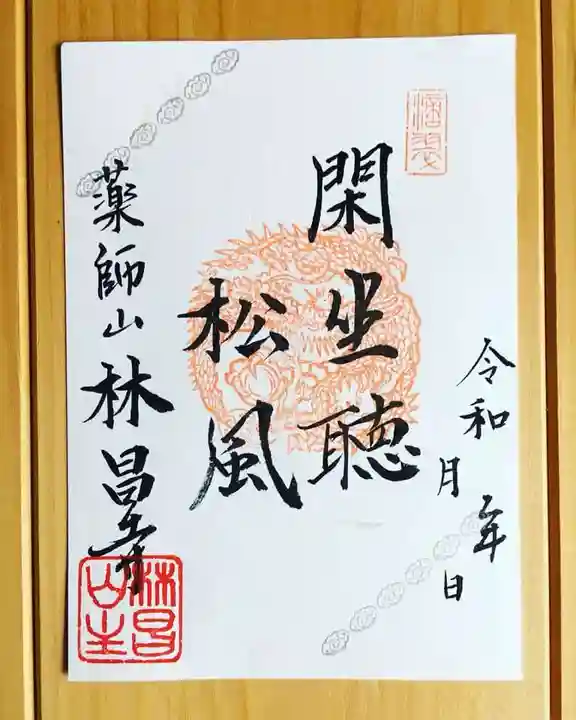 令和年月日
閑坐聴
松風
薬師山林昌寺